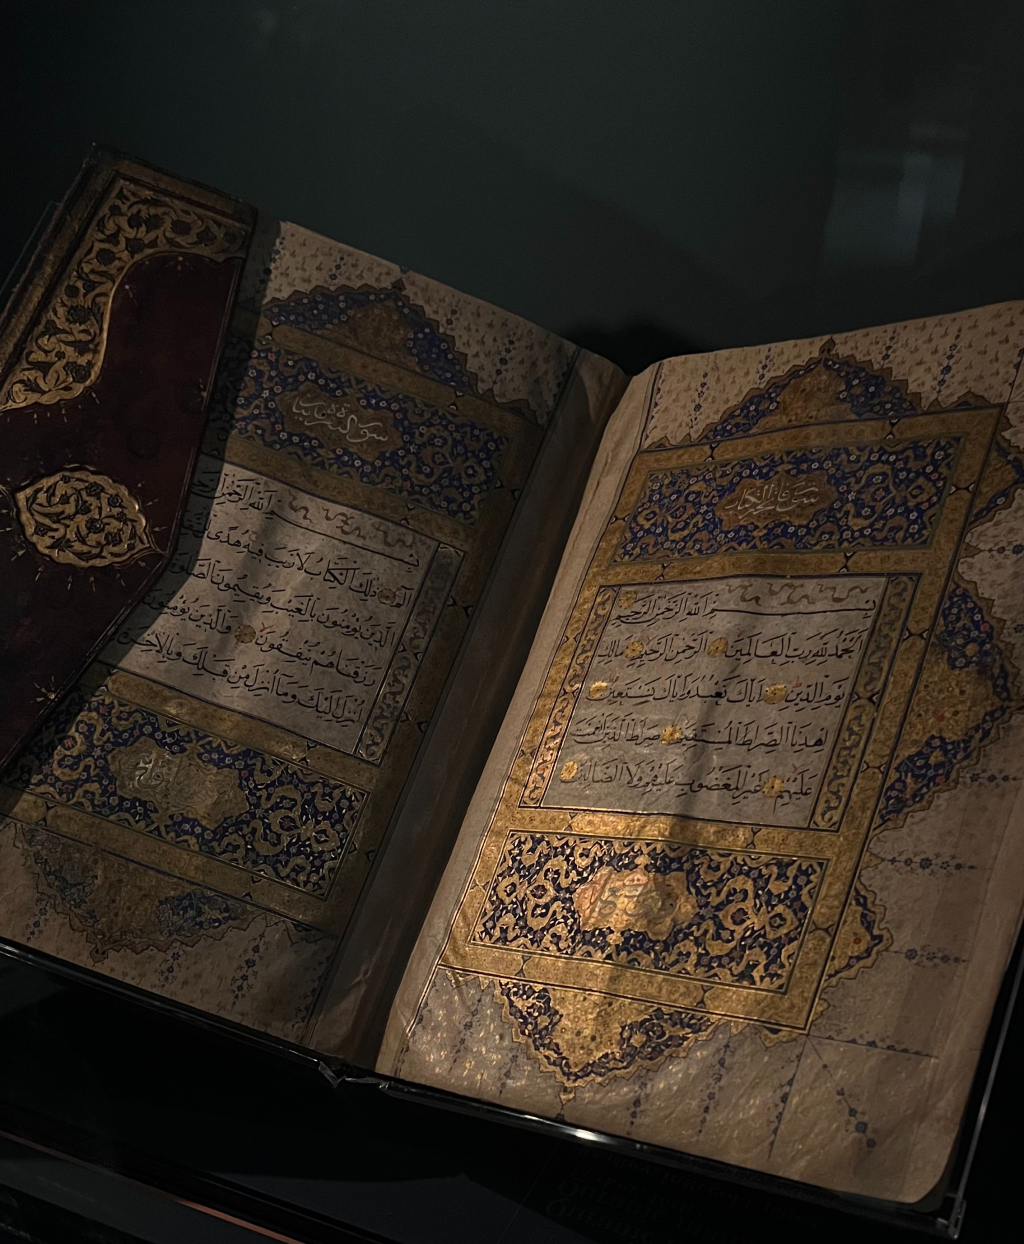 سورة فاتحة الكتاب
بسم الله الرحمن الرحيم
الحمد لله رب العالمين الرحمن الرحيم مالك
يوم الدين اياك نعبد واياك نستعين
اهدنا الصراط المستقيم صراط الذين انعمت
عليهم غير المغضوب عليهم ولا الضالين
سورة
بسم الله الرحمن
الم ذلك الكتاب لا ريب فيه هدى
الذين يؤمنون بالغيب ويقيمون الصلوة
رزقناهم ينفقون والذين يؤمنون
انزل اليك وما انزل من قبلك وبالاخرة